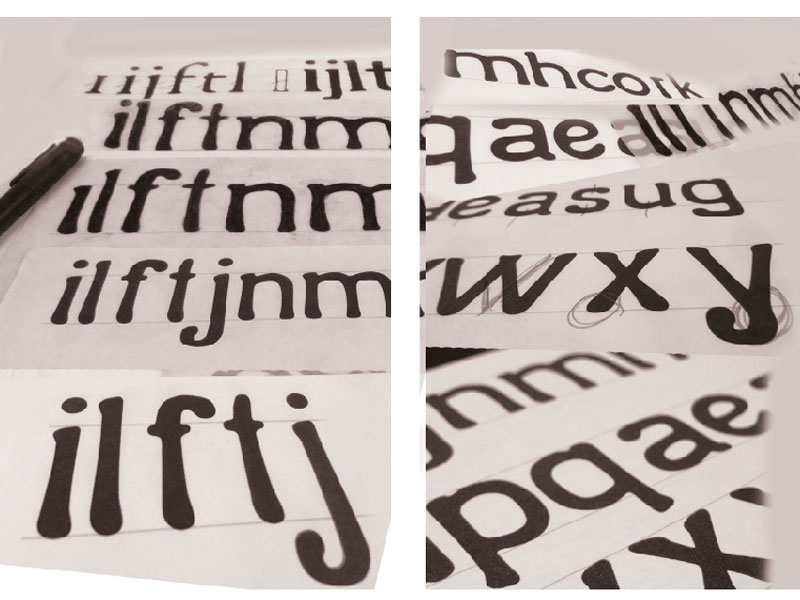 ıijftl ijlt
ilftnm
ılftnm
ilftjnm
ilftj
mhcork
qae
nmh
easug
wxy
nmh
pqae
x